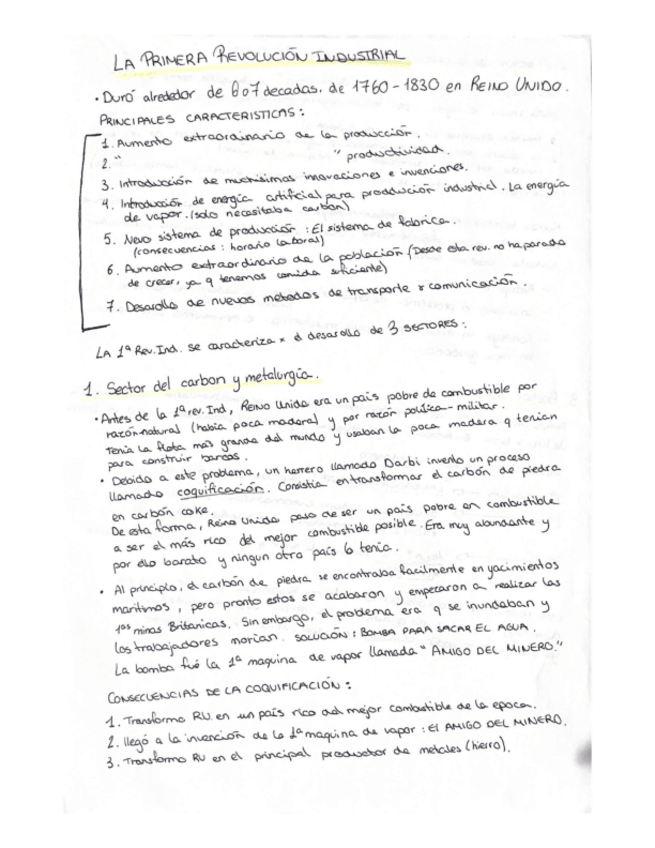 LA PRIMERA REVOLUCIÓN INDUSTRIAL
• Duró alrededor de 6 o 7 decadas. de 1760 - 1830 en REINO UNIDO.
PRINCIPALES CARACTERISTICAS:
1. Aumento extraordinario de la producción.
2. " " productividad.
3. Introducción de muchisimas innovaciones e invenciones.
4. Introducción de energia artificial para producción industrial. La energía
de vapor. (solo necesitaba carbón)
5. Nevo sistema de producción: El sistema de fabrica.
(consecuencias: horario laboral)
6. Aumento extraordinario de la población (Desde esta rev. no ha parado
de crecer, ya q tenemos comida suficiente)
7. Desarollo de nuevos metodos de transporte y comunicación.
LA 1ª Rev. Ind. se caracteriza x el desarollo de 3 SECTORES:
1. Sector del carbon y metalurgia.
• Antes de la 1ª rev. Ind, Reino Unido era un país pobre de combustible por
razón natural (había poca madera) y por razón política - militar.
Tenia la flota más grande del mundo y usaban la poca madera q tenian
para construir barcos.
• Debido a este problema, un herrero llamado Darbi invento un proceso
llamado coquificación. Consistia en transformar el carbón de piedra
en carbón coke.
De esta forma, Reino Unido paso de ser un país pobre en combustible
a ser el más rico del mejor combustible posible. Era muy abundante y
por ello barato y ningun otro país lo tenia.
• Al principio, el carbón de piedra se encontraba facilmente en yacimientos
maritimos, pero pronto estos se acabaron y empezaron a realizar las
1as minas Britanicas. Sin embargo, el problema era q se inundaban y
los trabajadores morian. SOLUCIÓN: BOMBA PARA SACAR EL AGUA.
La bomba fué la 1ª maquina de vapor llamada "AMIGO DEL MINERO."
CONSECUENCIAS DE LA COQUIFICACIÓN:
1. Transformo RU. en un país rico del mejor combustible de la epoca.
2. llegó a la invención de la 1ª maquina de vapor: El AMIGO DEL MINERO.
3. Transformo RU en el principal productor de metales (hierro).